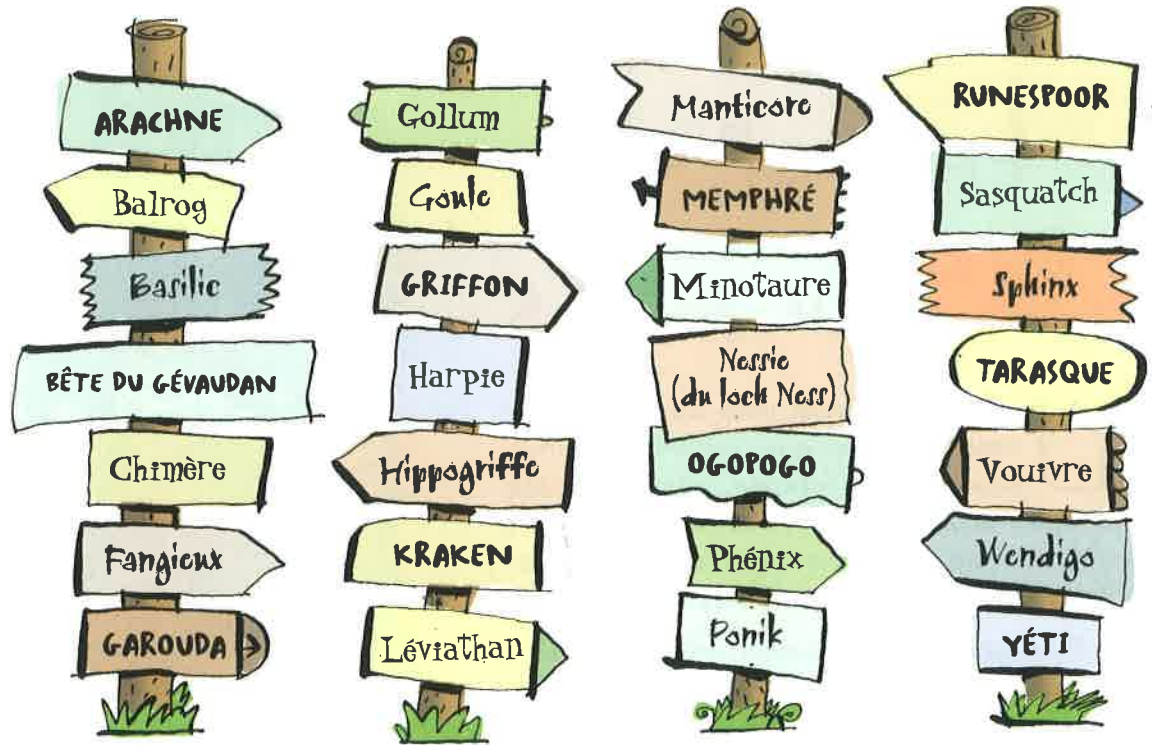 ARACHNE
Balrog
Basilic
BÊTE DU GÉVAUDAN
Chimère
Fangieux
GAROUDA
Gollum
Goule
GRIFFON
Harpie
Hippogriffe
KRAKEN
Léviathan
Manticore
MEMPHRÉ
Minotaure
Nessie
(du loch Ness)
OGOPOGO
Phénix
Ponik
RUNESPOOR
Sasquatch
Sphinx
TARASQUE
Vouivre
Wendigo
YÉTI